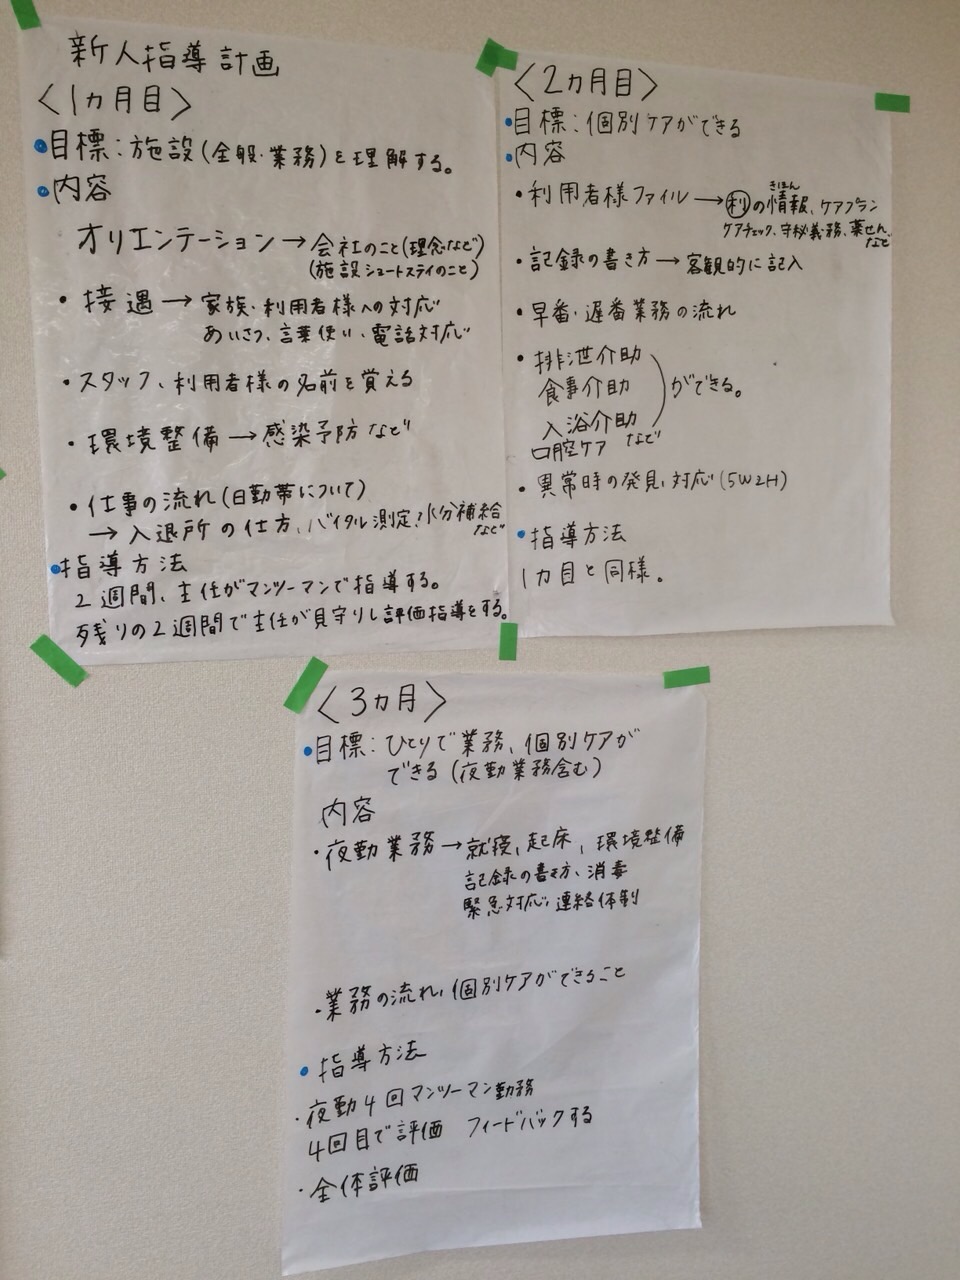 新人指導計画
〈1ヵ月目〉
・目標:施設(全般・業務)を理解する。
・内容
オリエンテーション→会社のこと(理念など)
(施設ショートステイのこと)
・接遇→家族・利用者様への対応
あいさつ、言葉使い、電話対応
・スタッフ、利用者様の名前を覚える
・環境整備→感染予防など
・仕事の流れ(日勤帯について)
→入退所の仕方、バイタル測定、水分補給
など
・指導方法
2週間、主任がマンツーマンで指導する。
残りの2週間で主任が見守りし評価指導をする。
〈2ヵ月目〉
・目標:個別ケアができる
・内容
・利用者様ファイル→利の情報、ケアプラン
きほん
ケアチェック、守秘義務、薬せん
など
・記録の書き方→客観的に記入
・早番・遅番業務の流れ
・排泄介助
食事介助
入浴介助
口腔ケア など
ができる。
・異常時の発見、対応(5W2H)
・指導方法
1ヵ目と同様。
〈3ヵ月〉
・目標:ひとりで業務、個別ケアが
できる(夜勤業務含む)
内容
・夜勤業務→就寝、起床、環境整備
記録の書き方、消毒
緊急対応、連絡体制
・業務の流れ、個別ケアができること
・指導方法
・夜勤4回マンツーマン勤務
4回目で評価 フィードバックする
・全体評価